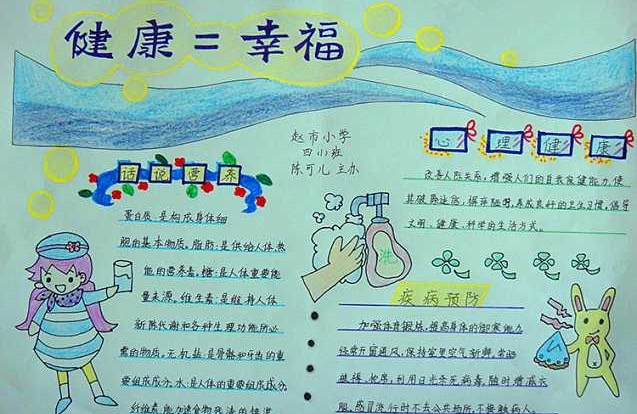 健康=幸福
赵市小学
四小班
陈可儿 主办
话说营养
蛋白质:是构成身体细
胞的基本物质。脂肪:是供给人体热
能的营养素。糖:是人体重要能
量来源。维生素:是维持人体
新陈代谢和各种生理功能所必
需的物质。无机盐:是骨骼和牙齿的重
要组成成分。水:是人体的重要组成成分
纤维素:能加速食物残渣的排泄
心理健康
改善人际关系,增强人们的自我保健能力,使
其破除迷信,摒弃陋习,养成良好的卫生习惯,倡导
文明、健康、科学的生活方式。
洗
疾病预防
加强体育锻炼,提高身体的御寒能力
经常开窗通风,保持室里空气新鲜,常晒
被褥、地席,利用日光杀死病毒,随时增减衣
服,感冒流行时不去公共场所,不接触病人。